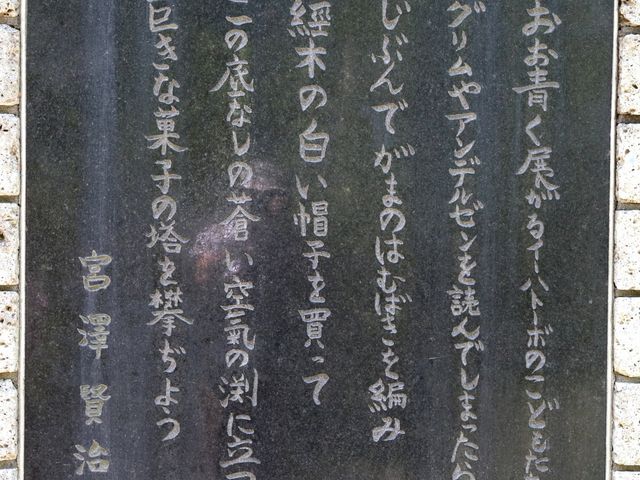 おお青く展がるイーハトーボのこどもた
グリムやアンデルゼンを読んでしまったら
じぶんでがまのはむばきを編み
經木の白い帽子を買って
この底なしの蒼い空氣の渕に立つ
巨きな菓子の塔を攀ぢよう
宮澤賢治